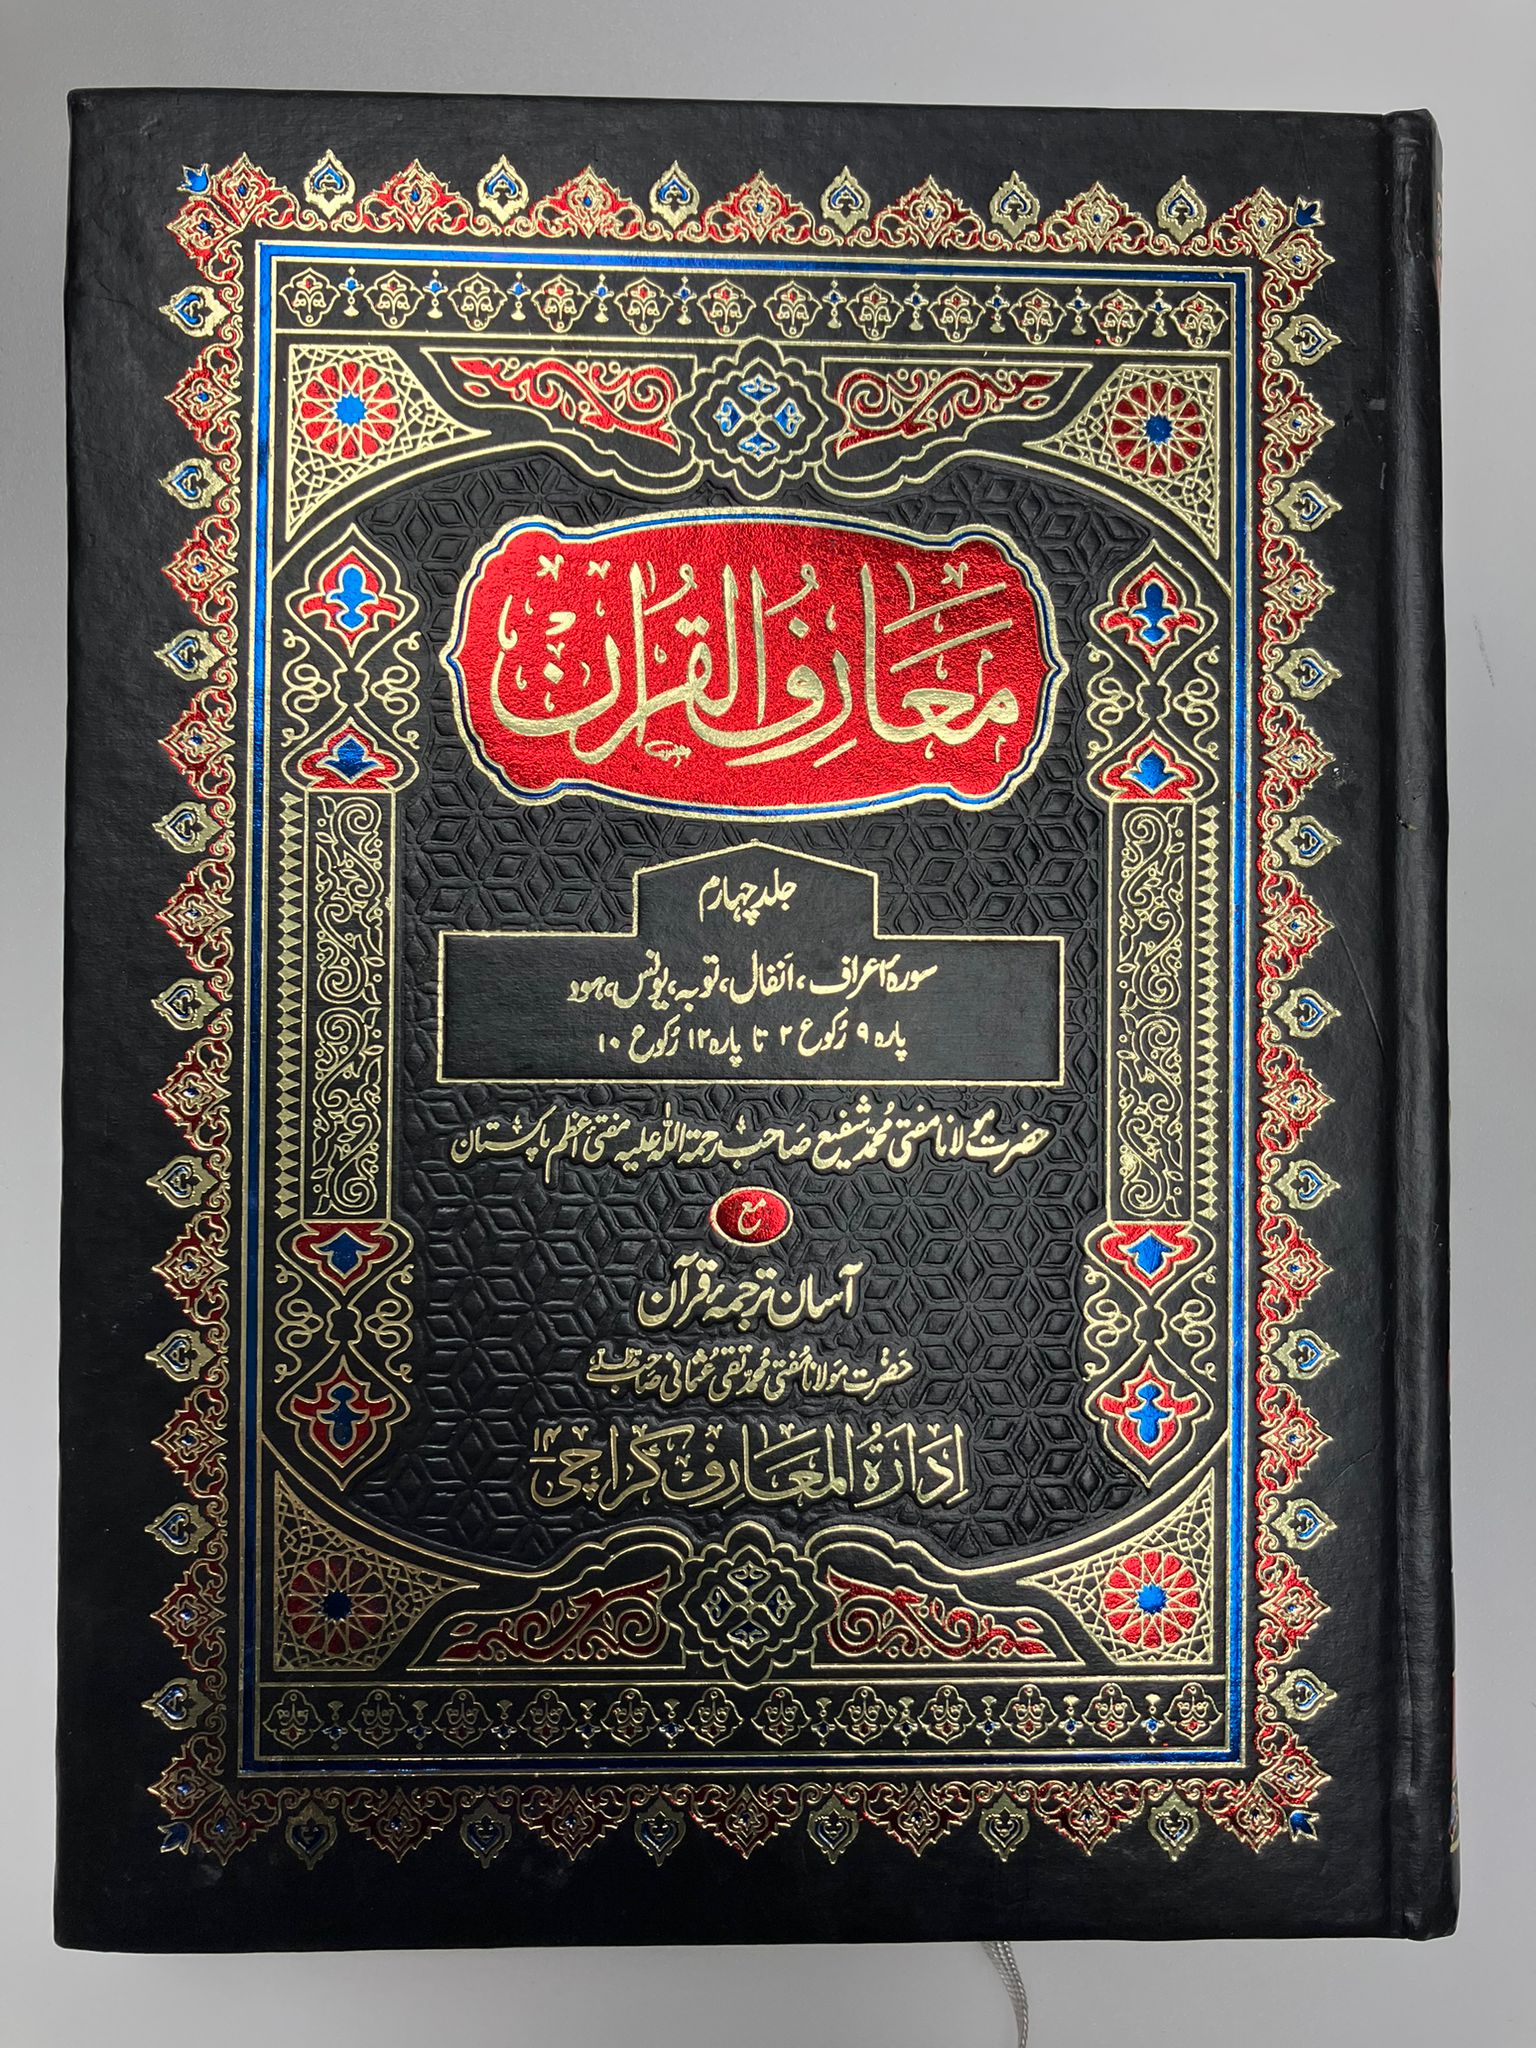 معارف القرآن
جلد چہارم
سورۂ اعراف، انفال، توبہ، یونس، ہود
پارہ ۹ رکوع ۲ تا پارہ ۱۲ رکوع ۱۰
حضرت مولانا مفتی محمد شفیع صاحب رحمۃ اللہ علیہ مفتی اعظم پاکستان
مع
آسان ترجمۂ قرآن
حضرت مولانا مفتی محمد تقی عثمانی صاحب مدظلہ
ادارۃ المعارف کراچی ۱۴